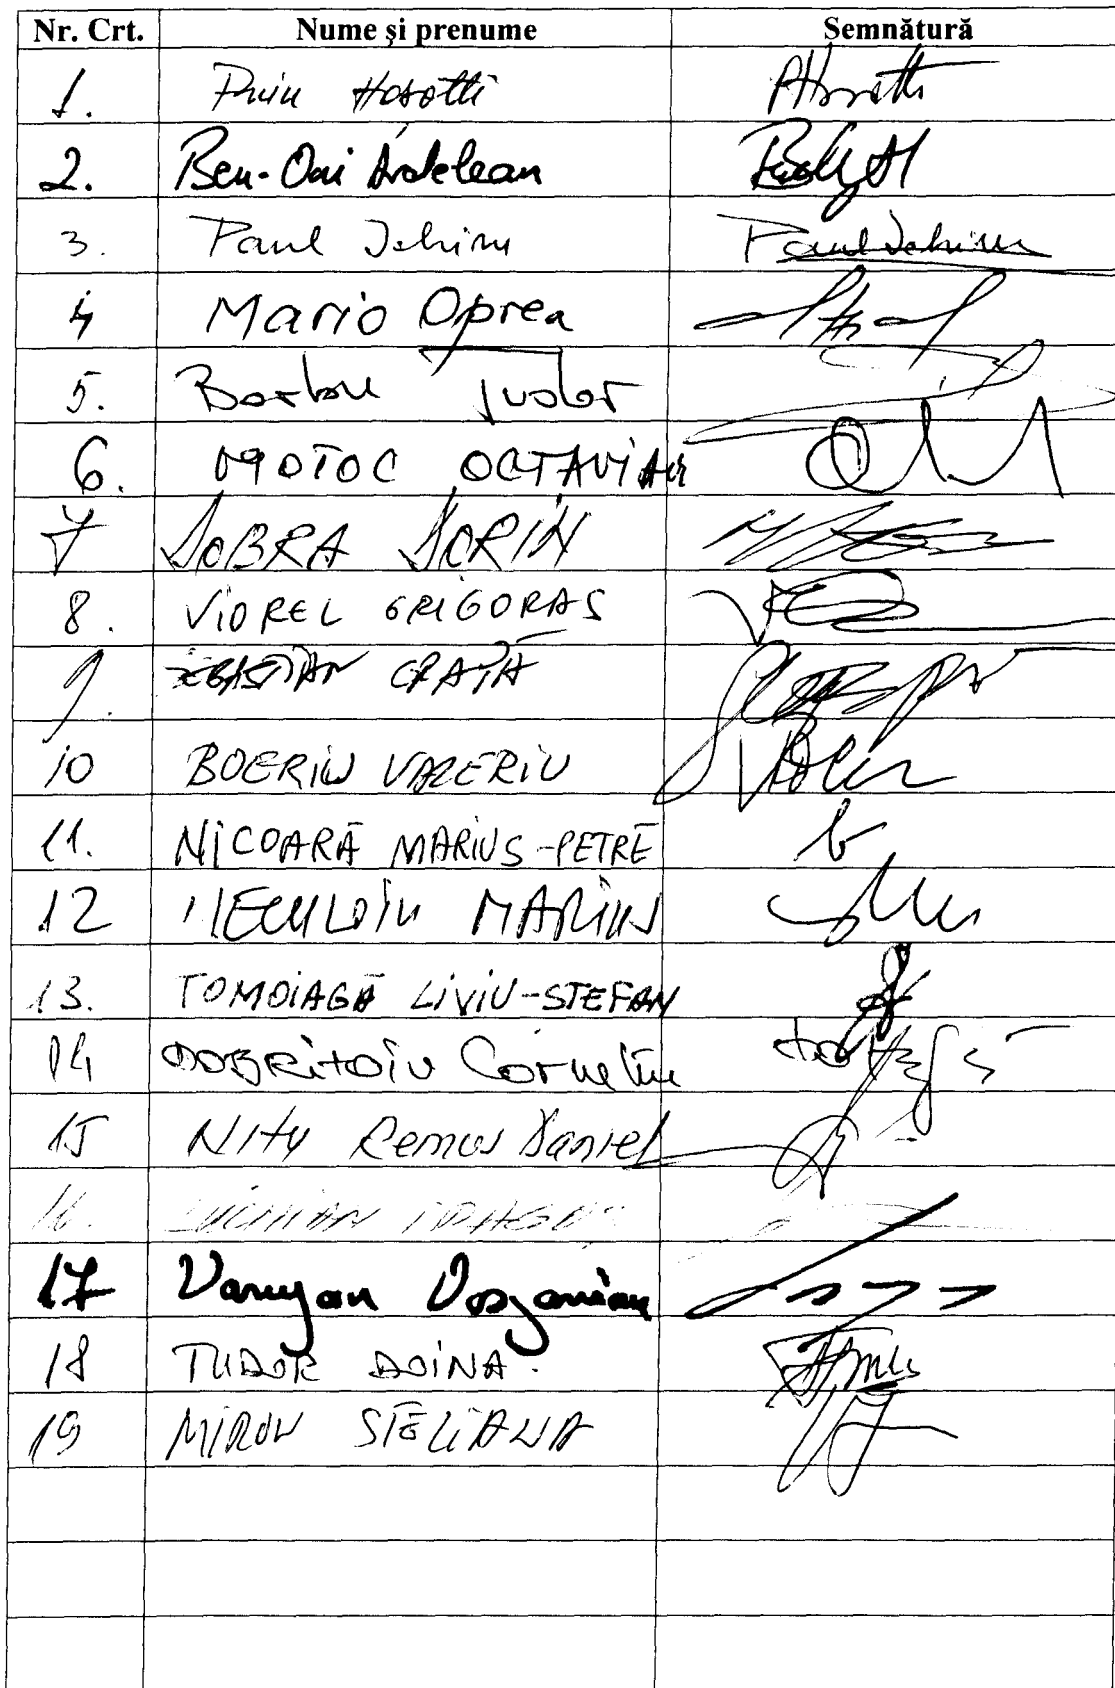 Nr. Crt. Nume şi prenume Semnătură
1. Puiu Hașotti
2. Ben-Oni Ardelean
3. Paul Ichim Paul Ichim
4 Mario Oprea
5. Barbu Tudor
6. MOTOC OCTAVIAN
7 DOBRA DORIN
8. VIOREL GRIGORAS
9. CRAȚĂ
10 BOERIU VALERIU
11. NICOARĂ MARIUS-PETRE
12 MARIUS
13. TOMOIAGĂ LIVIU-STEFAN
14 DOBRITOIU Corneliu
15 NITU Remus Daniel
16.
17 Varujan Vosganian
18 TUDOR DOINA.
19 MIRON STELIANA